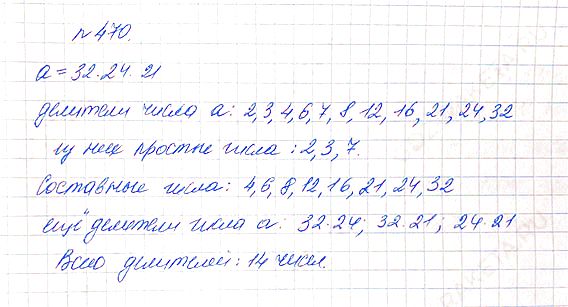 №470.
а = 32·24·21
делители числа а: 2,3,4,6,7,8,12,16,21,24,32
из них простые числа: 2,3,7.
Составные числа: 4,6,8,12,16,21,24,32
ещё делители числа а: 32·24; 32·21; 24·21
Всего делителей: 14 чисел.